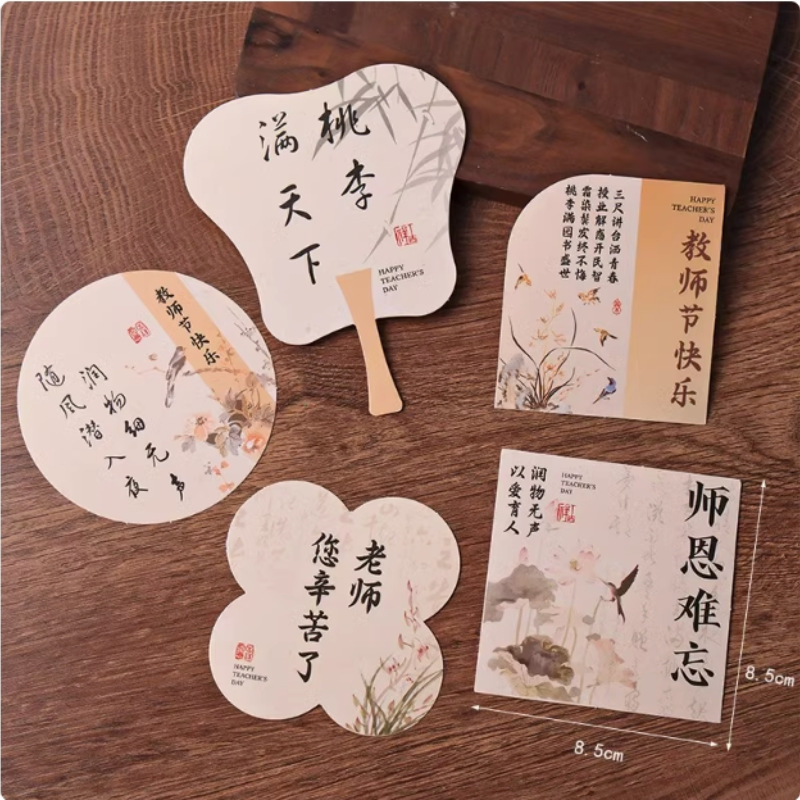 桃李
满天下
HAPPY
TEACHER'S
DAY
三尺讲台洒青春
授业解惑开民智
霜染鬓发终不悔
桃李满园书盛世
HAPPY
TEACHER'S
DAY
教师节快乐
教师节快乐
润物细无声
随风潜入夜
老师
您辛苦了
HAPPY
TEACHER'S
DAY
润物无声
以爱育人
HAPPY
TEACHER'S
DAY
师恩难忘
8.5cm
8.5cm